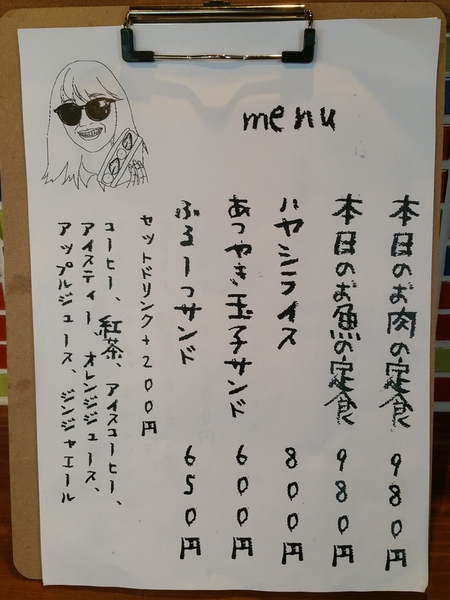 menu
本日のお肉の定食 980円
本日のお魚の定食 980円
ハヤシライス 800円
あつやき玉子サンド 600円
ふるーつサンド 650円
セットドリンク+200円
コーヒー、紅茶、アイスコーヒー、
アイスティー オレンジジュース、
アップルジュース、ジンジャエール